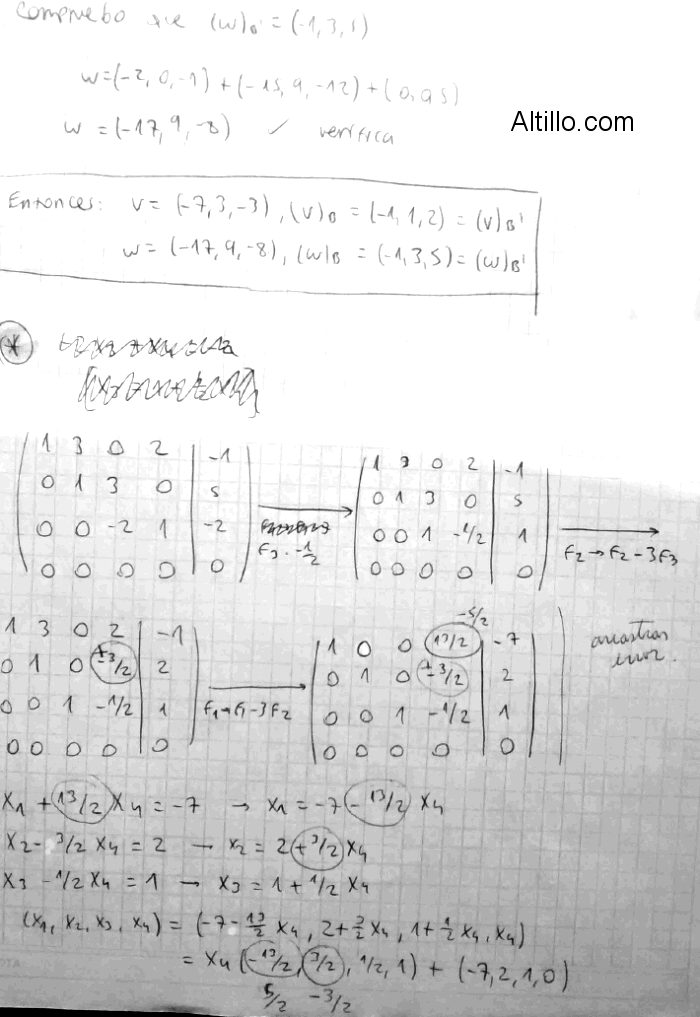 Compruebo que (w)B' = (-1,3,5)
w=(-2,0,-1)+(-15,9,-12)+(0,0,5)
w = (-17,9,-8) ✓ verifica
Altillo.com
Entonces: v= (-7,3,-3), (v)B = (-1,1,2) = (v)B'
w= (-17,9,-8), (w)B = (-1,3,5)= (w)B'
*
1 3 0 2 | -1
0 1 3 0 | 5
0 0 -2 1 | -2
0 0 0 0 | 0
F3 . -1/2
1 3 0 2 | -1
0 1 3 0 | 5
0 0 1 -1/2 | 1
0 0 0 0 | 0
F2→F2-3F3
1 3 0 2 | -1
0 1 0 ±3/2 | 2
0 0 1 -1/2 | 1
0 0 0 0 | 0
F1→F1-3F2
-5/2
1 0 0 13/2 | -7
0 1 0 ±3/2 | 2
0 0 1 -1/2 | 1
0 0 0 0 | 0
arrastras
error.
x1 + 13/2 x4 = -7 → x1 = -7 - 13/2 x4
x2 - 3/2 x4 = 2 → x2 = 2 + 3/2 x4
x3 - 1/2 x4 = 1 → x3 = 1 + 1/2 x4
(x1, x2, x3, x4) = (-7 - 13/2 x4, 2 + 3/2 x4, 1 + 1/2 x4, x4)
= x4 (-13/2, 3/2, 1/2, 1) + (-7,2,1,0)
5/2 -3/2